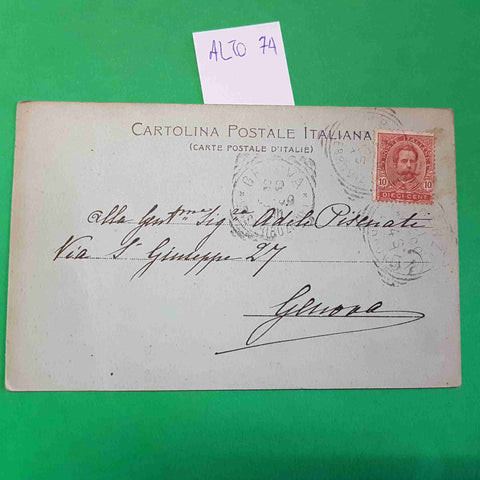 ALTO 74
CARTOLINA POSTALE ITALIANA
(CARTE POSTALE D'ITALIE)
10 10
DIECI CENT.
Alla Gent.ma Sig.ra Adele Pisenati
Via S. Giuseppe 27
Genova